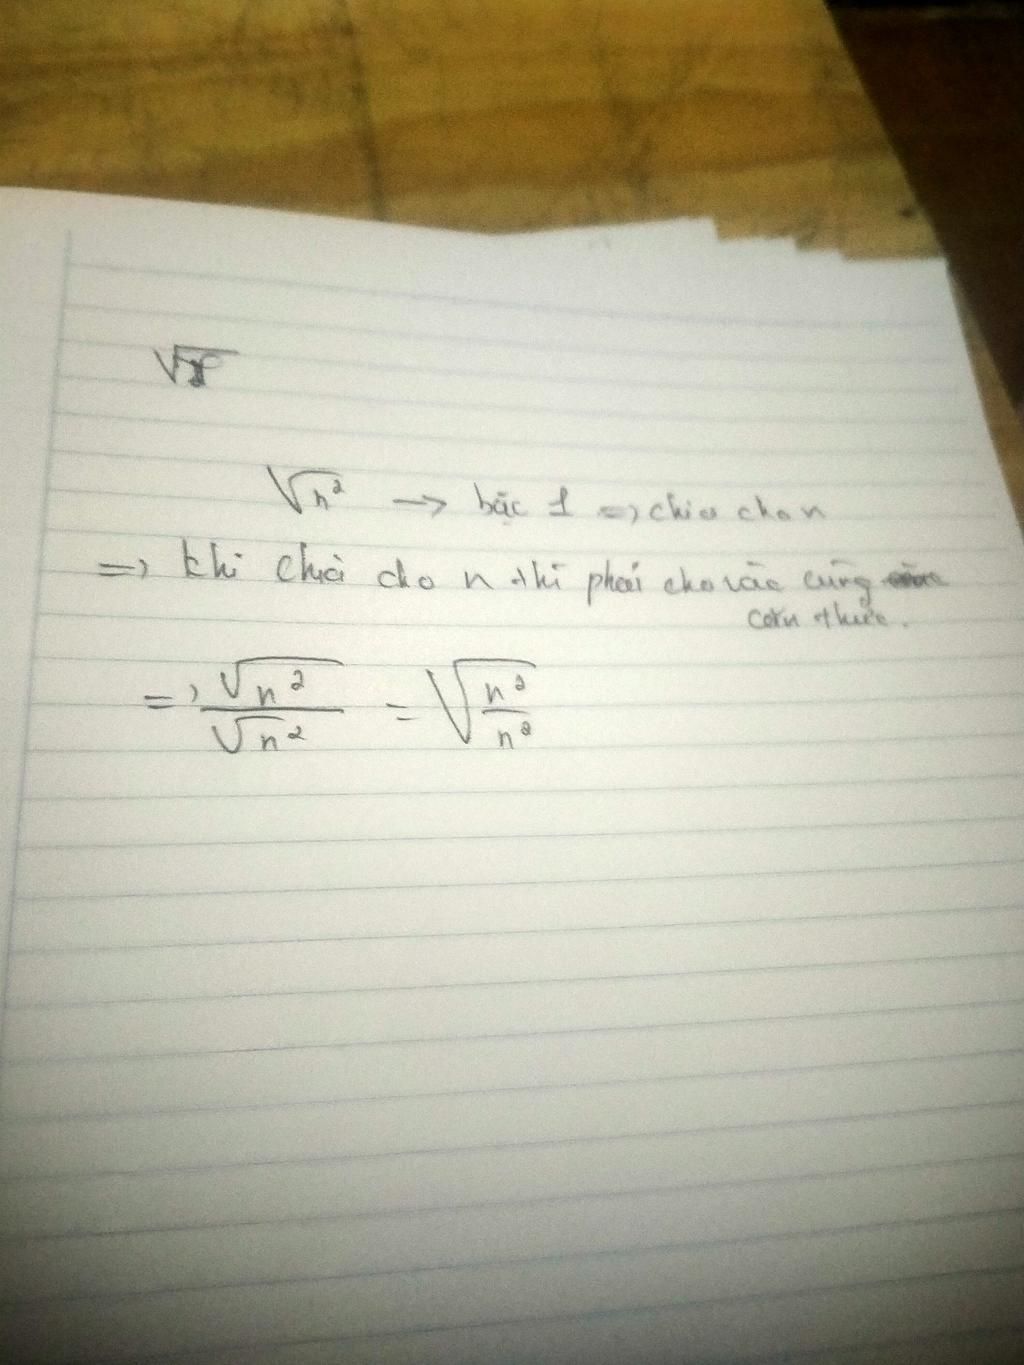 √n² → bậc 1 => chia cho n
=> khi chia cho n thì phải cho vào cùng
căn thức.
=> √n² / √n² = √(n² / n²)